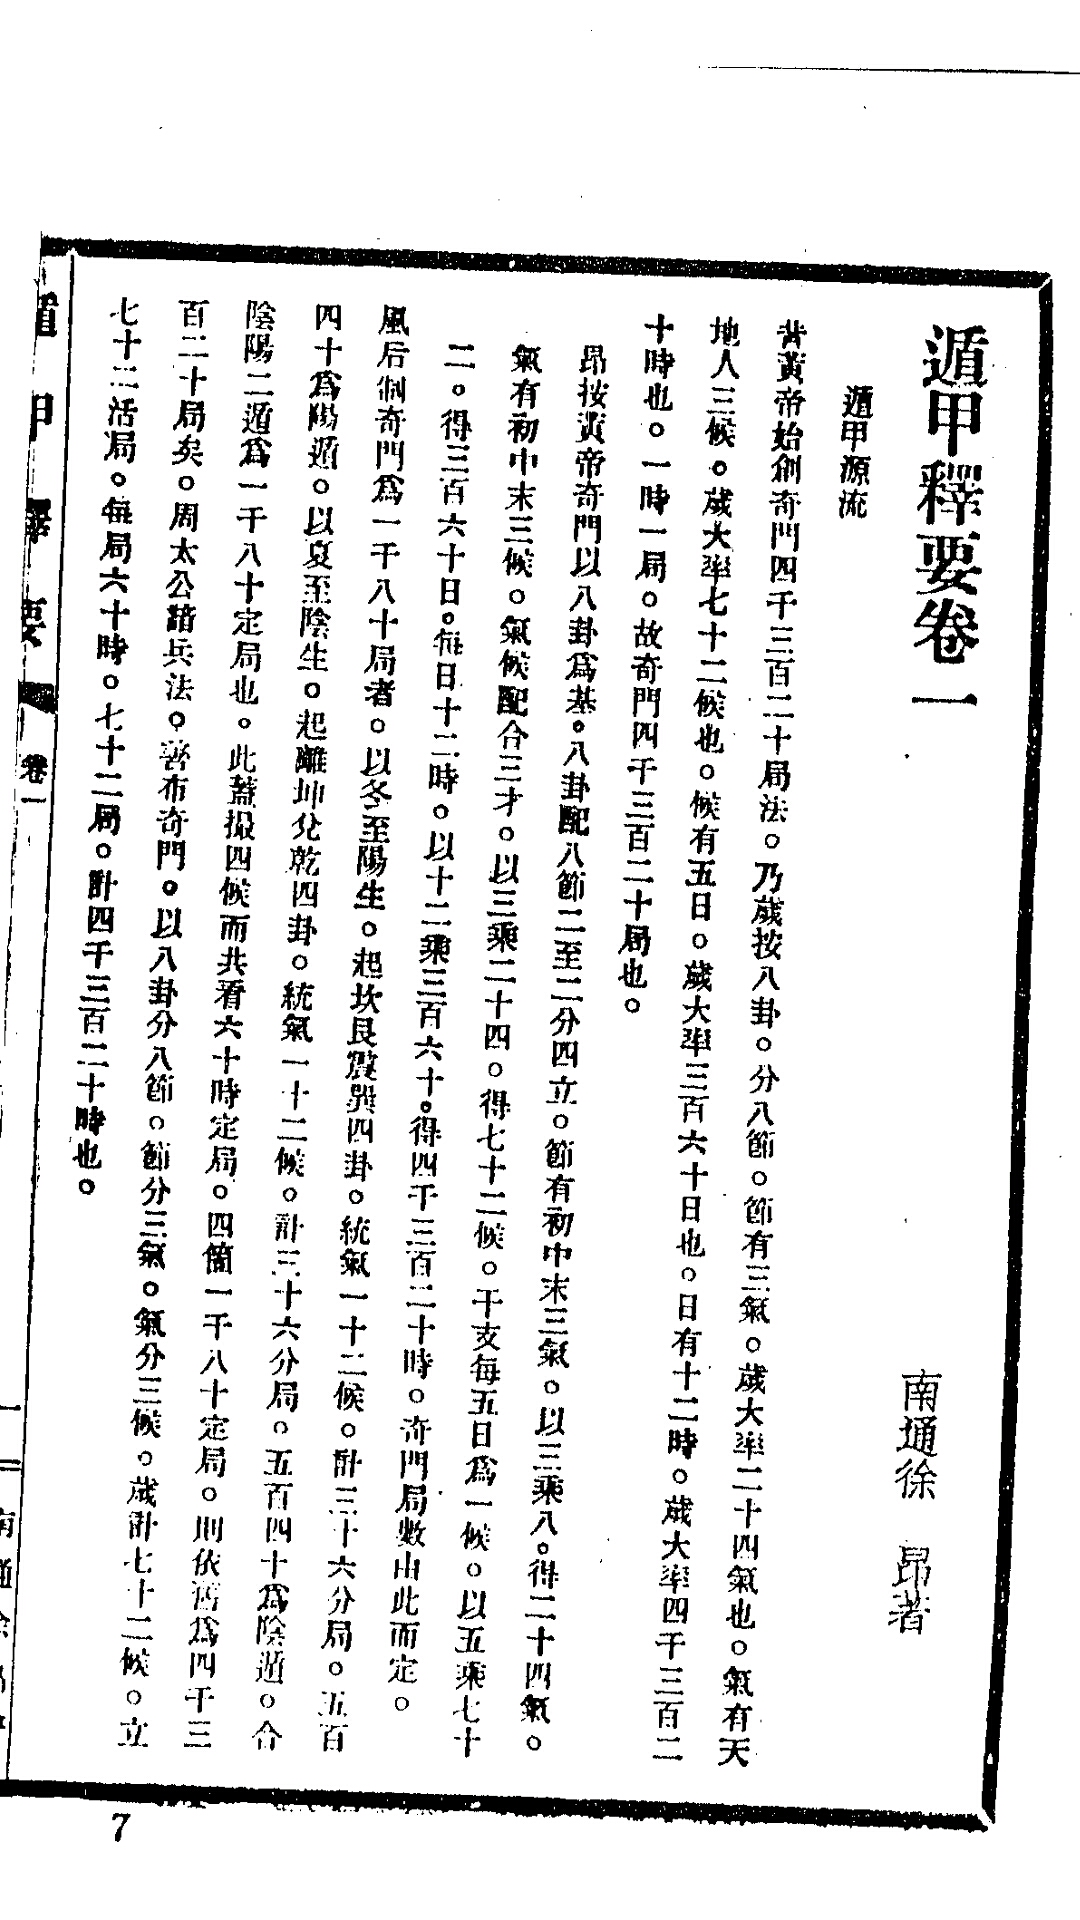 遁甲釋要卷一
南通徐　昂著
遁甲源流
昔黃帝始創奇門四千三百二十局法。乃歲按八卦。分八節。節有三氣。歲大率二十四氣也。氣有天
地人三候。歲大率七十二候也。候有五日。歲大率三百六十日也。日有十二時。歲大率四千三百二
十時也。一時一局。故奇門四千三百二十局也。
昂按黃帝奇門以八卦爲基。八卦配八節二至二分四立。節有初中末三氣。以三乘八。得二十四氣。
氣有初中末三候。氣候配合三才。以三乘二十四。得七十二候。干支每五日爲一候。以五乘七十
二。得三百六十日。每日十二時。以十二乘三百六十。得四千三百二十時。奇門局數由此而定。
風后制奇門爲一千八十局者。以冬至陽生。起坎艮震巽四卦。統氣一十二候。計三十六分局。五百
四十爲陽遁。以夏至陰生。起離坤兌乾四卦。統氣一十二候。計三十六分局。五百四十爲陰遁。合
陰陽二遁爲一千八十定局也。此蓋撮四候而共看六十時定局。四箇一千八十定局。則依舊爲四千三
百二十局矣。周太公諳兵法。善布奇門。以八卦分八節。節分三氣。氣分三候。歲計七十二候。立
七十二活局。每局六十時。七十二局。計四千三百二十時也。
遁甲釋要
卷一
一
南通徐
7